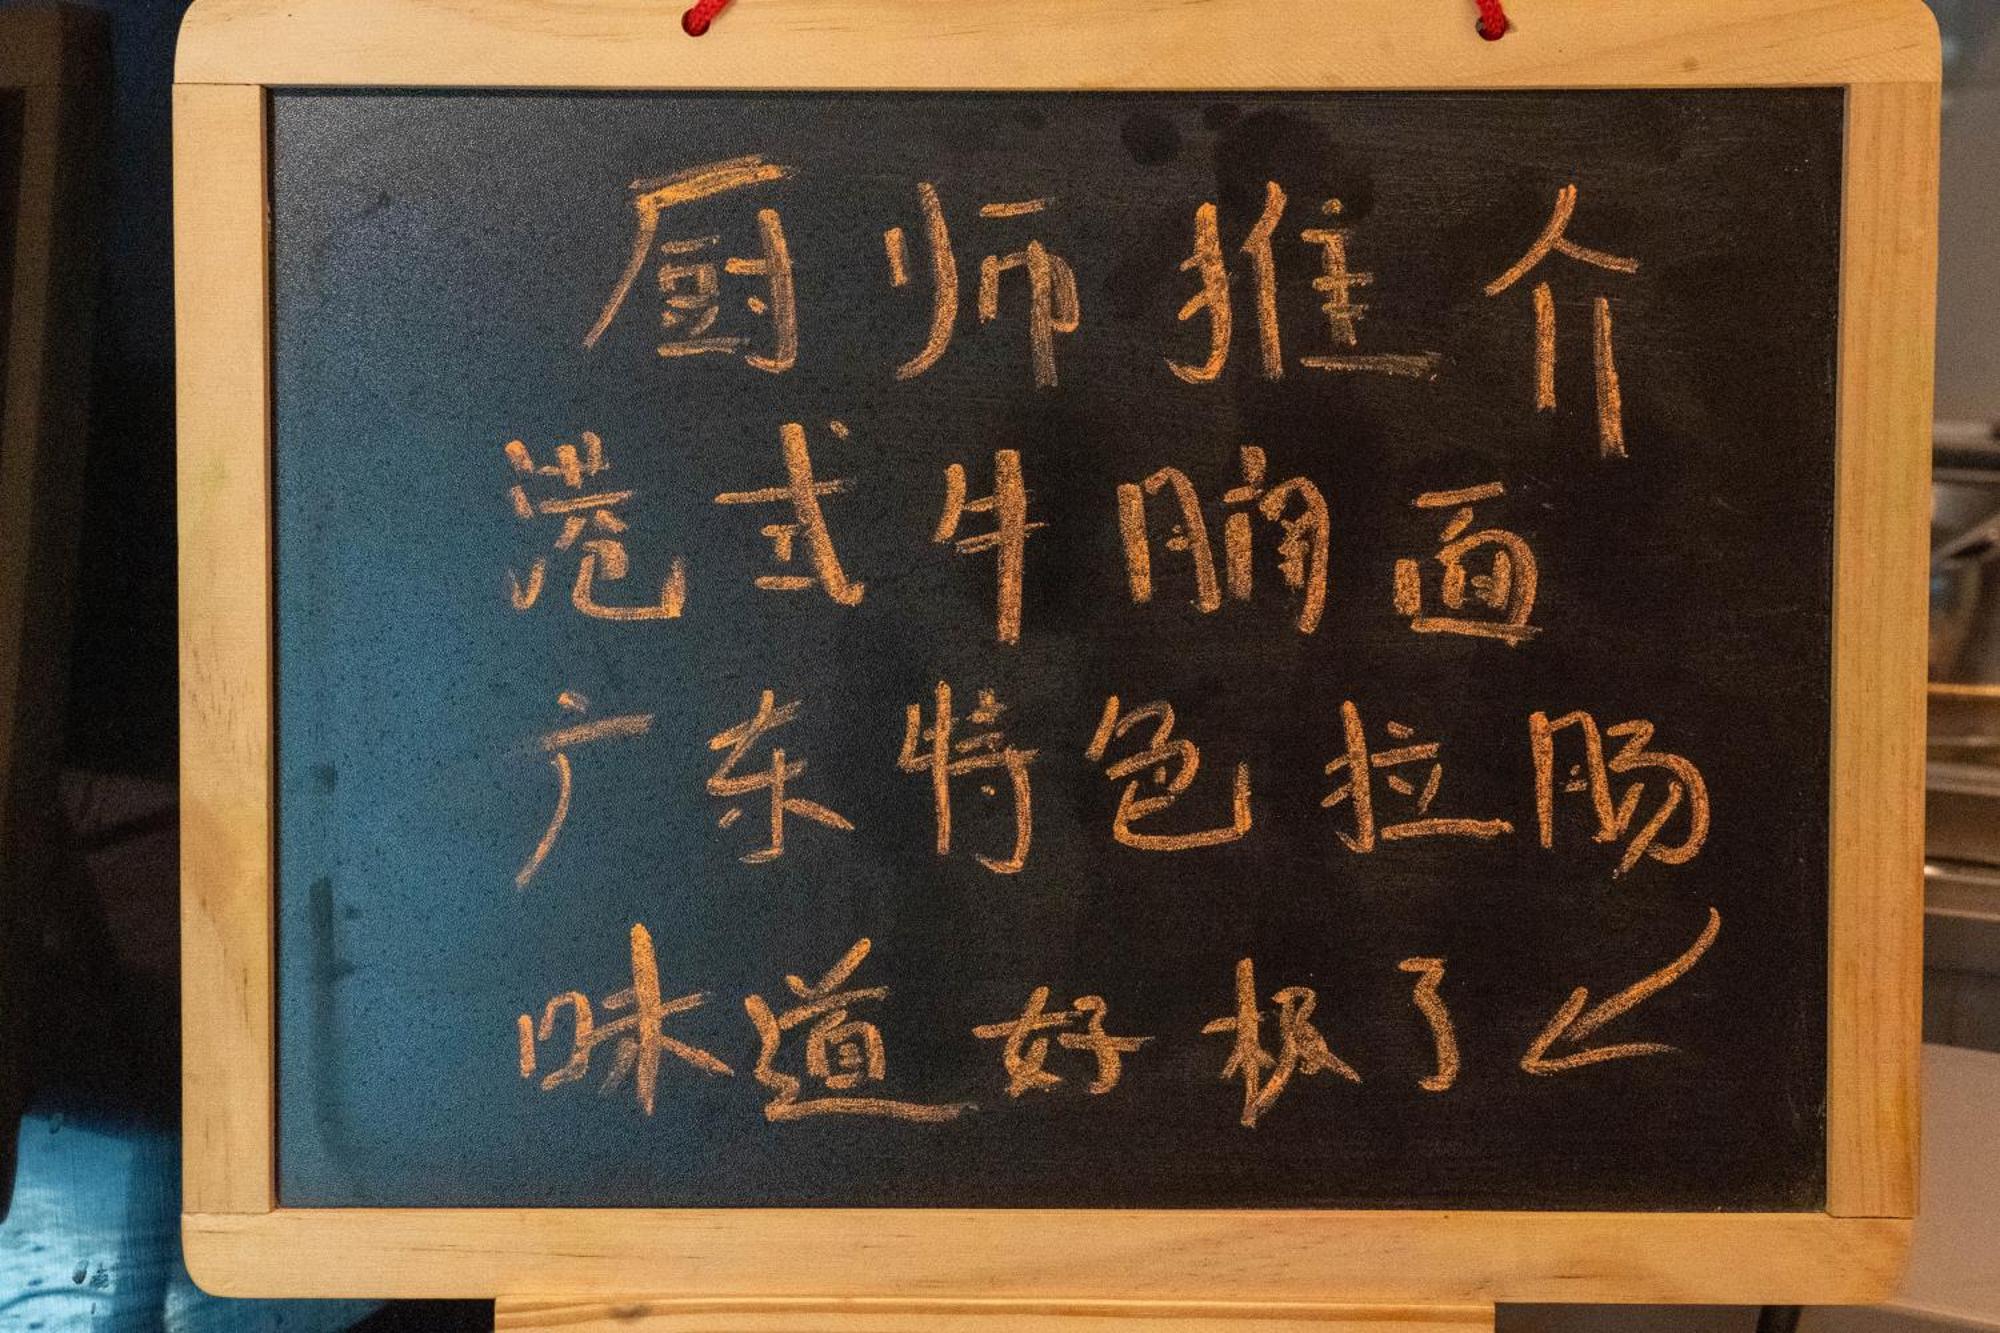 厨师推介
港式牛腩面
广东特色拉肠
味道好极了